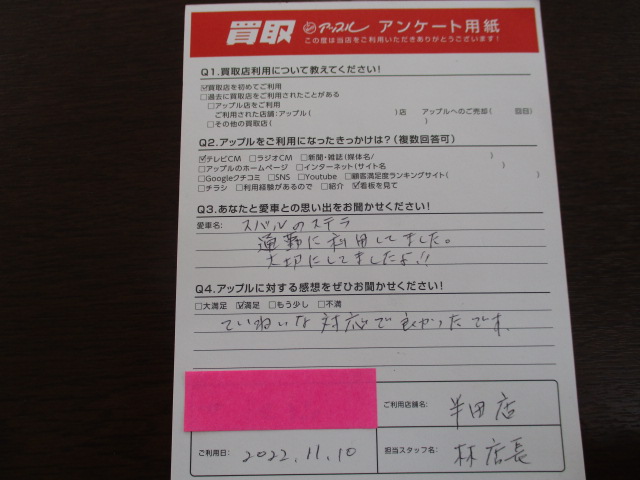 買取 アップル アンケート用紙
この度は当店をご利用いただきありがとうございます!
Q1.買取店利用について教えてください!
☑買取店を初めてご利用
□過去に買取店をご利用されたことがある
□アップル店をご利用
ご利用された店舗:アップル( )店 アップルへのご売却( 回目)
□その他の買取店( )
Q2.アップルをご利用になったきっかけは?(複数回答可)
☑テレビCM □ラジオCM □新聞・雑誌(媒体名/ )
□アップルのホームページ □インターネット(サイト名 )
□Googleクチコミ □SNS □Youtube □顧客満足度ランキングサイト( )
□チラシ □利用経験があるので □紹介 ☑看板を見て
Q3.あなたと愛車との思い出をお聞かせください!
愛車名: スバルのステラ
通勤に利用してました。
大切にしてましたよ!!
Q4.アップルに対する感想をぜひお聞かせください!
□大満足 ☑満足 □もう少し □不満
ていねいな対応で良かったです。
ご利用店舗名: 半田店
ご利用日: 2022.11.10
担当スタッフ名: 林店長